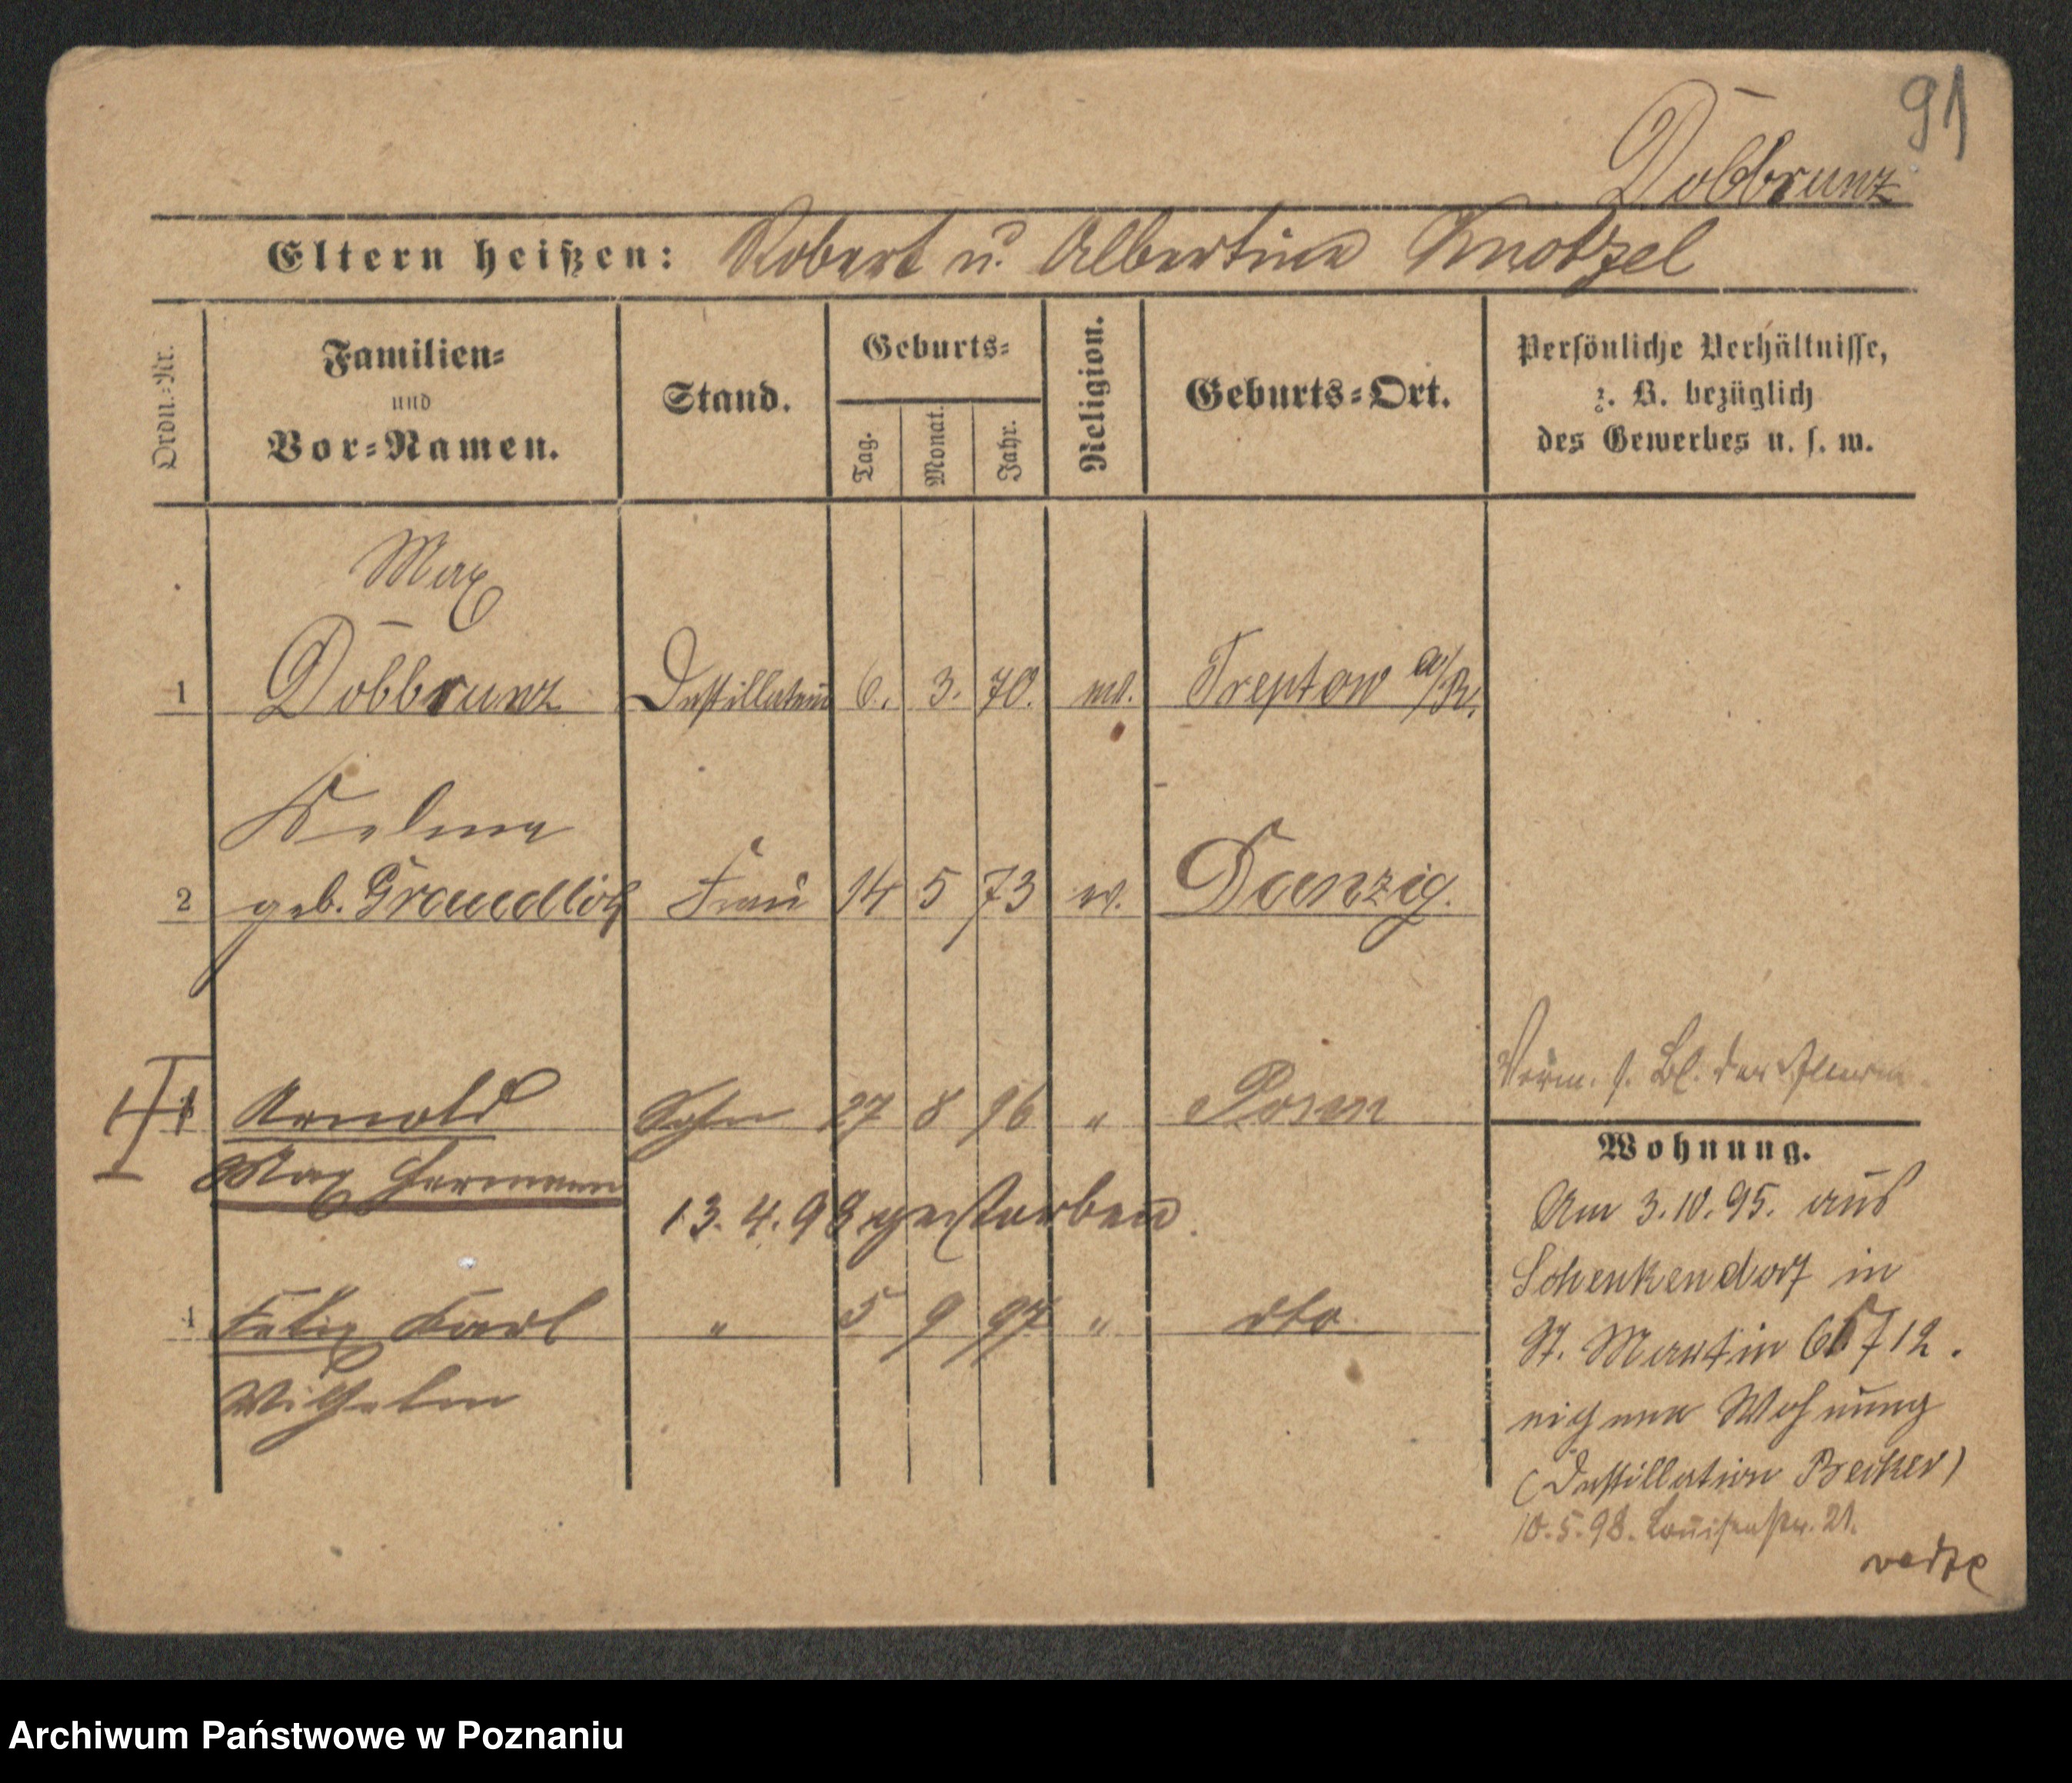 91
Dobbrunz
Eltern heißen: Robert u. Albertine
Ordn.=Nr.
Familien=
und
Vor=Namen.
Stand.
Geburts=
Tag.
Monat.
Jahr.
Religion.
Geburts=Ort.
Persönliche Verhältnisse,
z. B. bezüglich
des Gewerbes u. s. w.
Max
1 Dobbrunz Destillateur 6. 3. 70. ev. Treptow a/R.
2 geb. Frau 14 5 73 ev. Danzig.
Arnold Sohn 27 8 96 " Posen
Max Hermann
13.4.98 gestorben.
Felix Karl " 5 9 97 " dto
Wilhelm
Wohnung.
Am 3.10.95. aus
Schenkendorf in
St. Martin
eigene Wohnung
(Destillation Becker)
10.5.98. Louisenstr. 21.
Archiwum Państwowe w Poznaniu